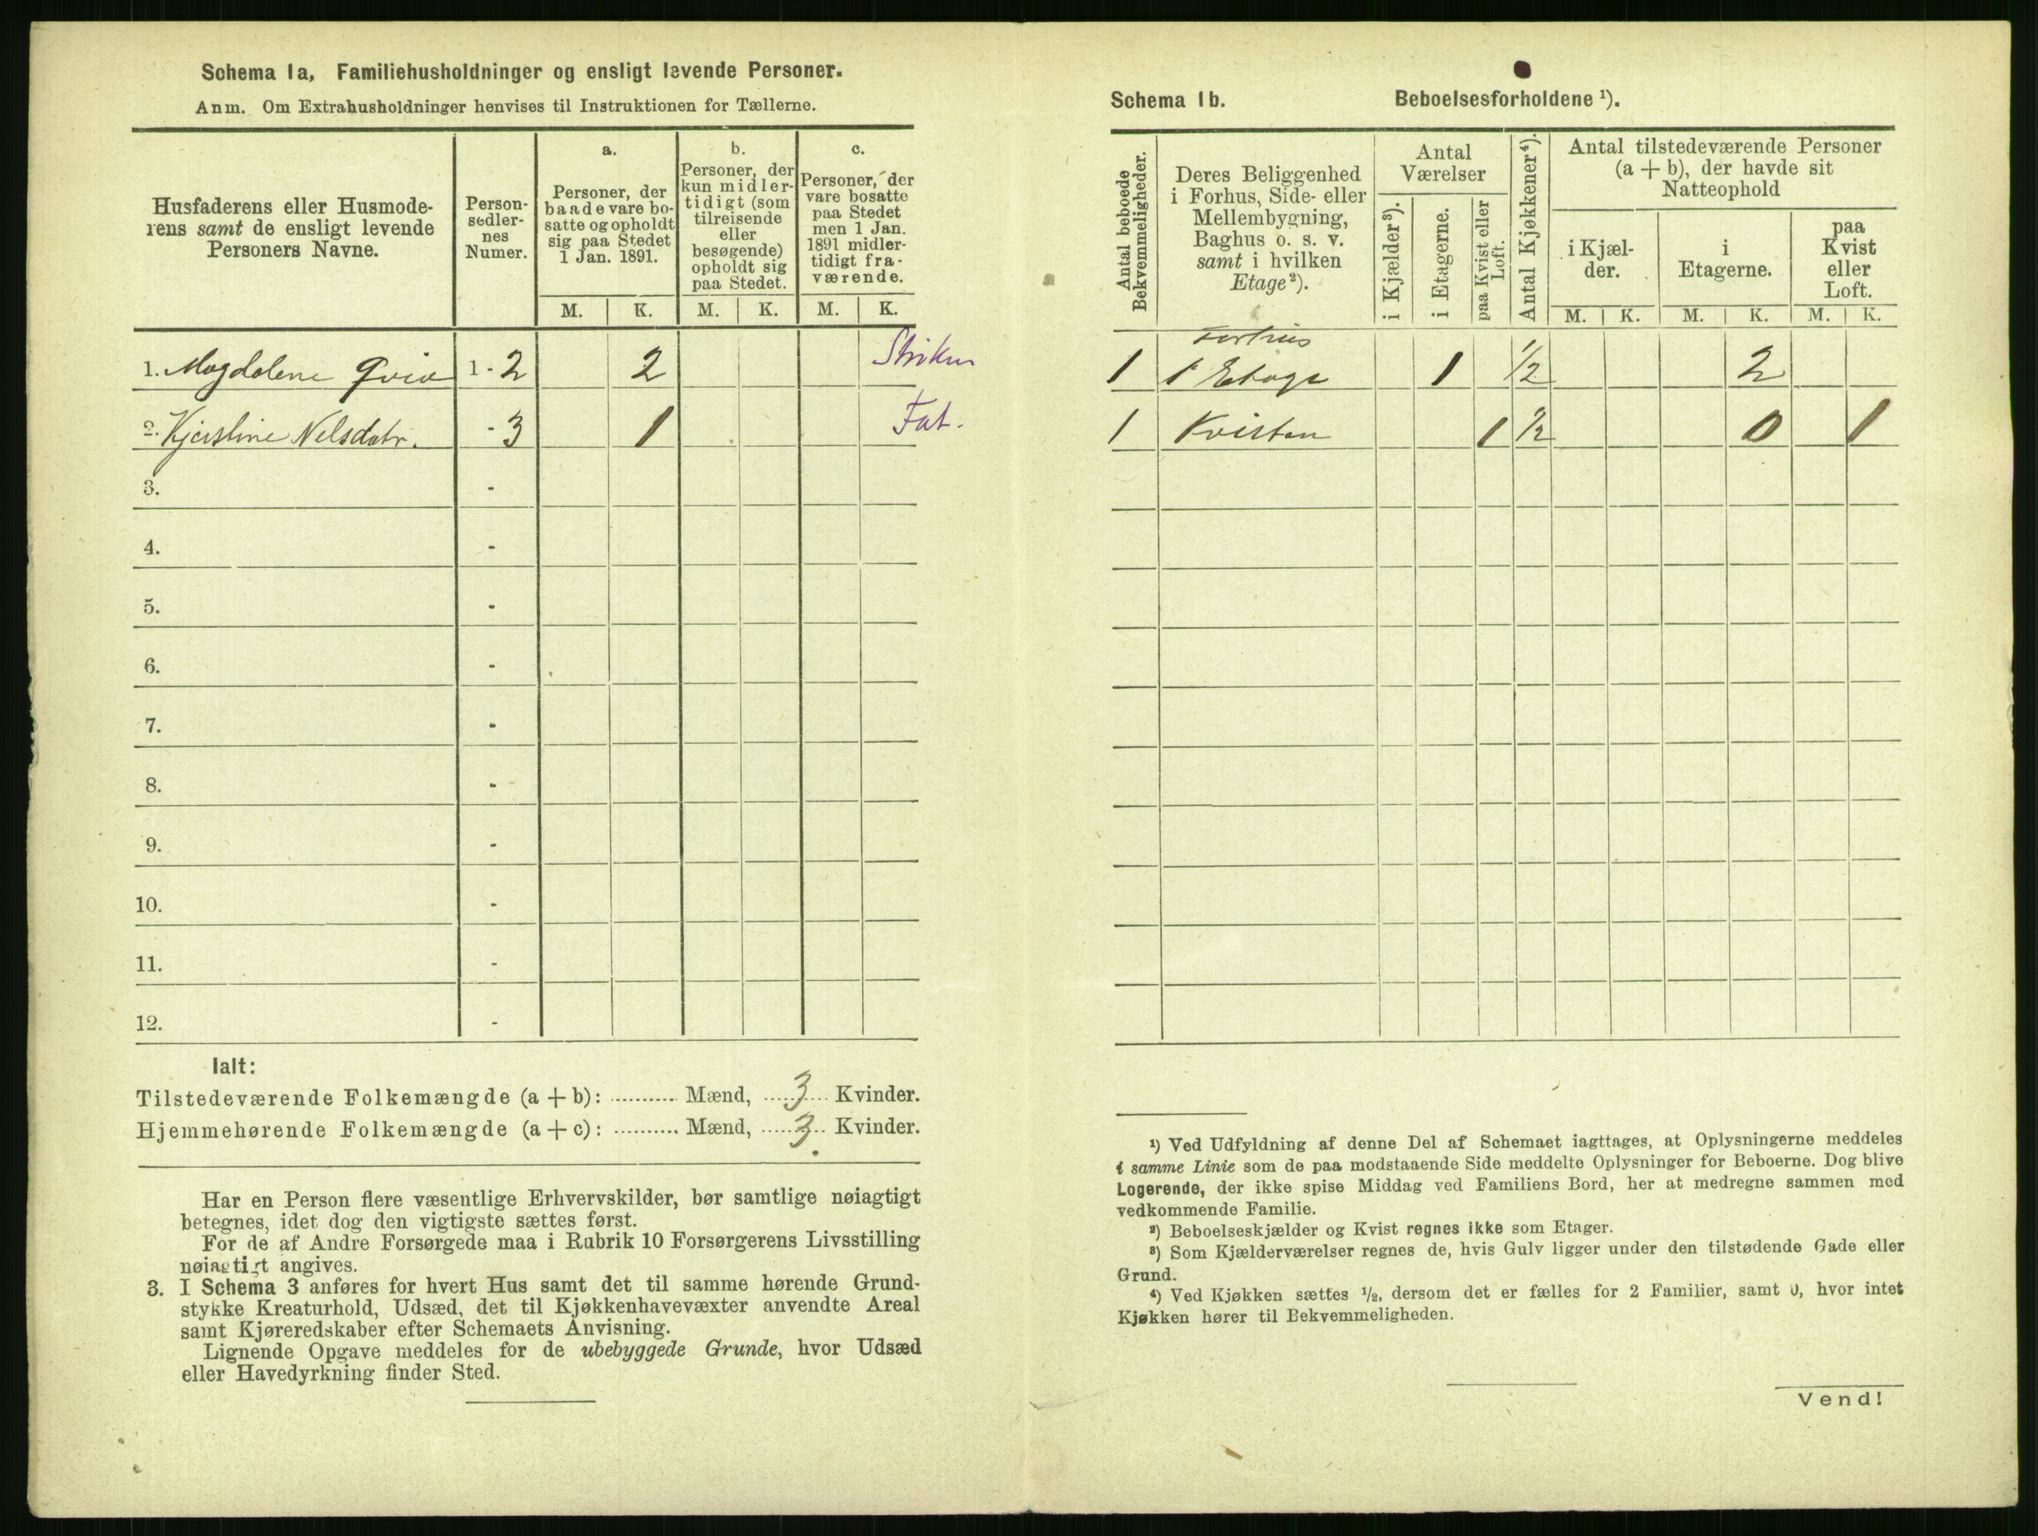 Schema 1a, Familiehusholdninger og ensligt levende Personer.
Anm. Om Extrahusholdninger henvises til Instruktionen for Tællerne.
Husfaderens eller Husmode-
rens samt de ensligt levende
Personers Navne.
Person-
sedler-
nes
Numer.
a.
Personer, der
baade vare bo-
satte og opholdt
sig paa Stedet
1 Jan. 1891.
b.
Personer, der
kun midler-
tidigt (som
tilreisende
eller
besøgende)
opholdt sig
paa Stedet.
c.
Personer, der
vare bosatte
paa Stedet
men 1 Jan.
1891 midler-
tidigt fra-
værende.
M. K. M. K. M. K.
1. Magdalene Qvie 1 - 2 2
2. Kjerstine Nelsdatr. - 3 1 Fat.
3. -
4. -
5. -
6. -
7. -
8. -
9. -
10. -
11. -
12. -
Ialt:
Tilstedeværende Folkemængde (a + b): .......... Mænd, 3 Kvinder.
Hjemmehørende Folkemængde (a + c): .......... Mænd, 3 Kvinder.
Har en Person flere væsentlige Erhvervskilder, bør samtlige nøiagtigt
betegnes, idet dog den vigtigste sættes først.
For de af Andre Forsørgede maa i Rubrik 10 Forsørgerens Livsstilling
nøiagtigt angives.
3. I Schema 3 anføres for hvert Hus samt det til samme hørende Grund-
stykke Kreaturhold, Udsæd, det til Kjøkkenhavevæxter anvendte Areal
samt Kjøreredskaber efter Schemaets Anvisning.
Lignende Opgave meddeles for de ubebyggede Grunde, hvor Udsæd
eller Havedyrkning finder Sted.
Schema 1b. Beboelsesforholdene ¹).
Antal beboede
Bekvemmeligheder.
Deres Beliggenhed
i Forhus, Side- eller
Mellembygning,
Baghus o. s. v.
samt i hvilken
Etage²).
Antal
Værelser
i Kjælder³).
i Etagerne.
paa Kvist eller
Loft.
Antal Kjøkkener⁴).
Antal tilstedeværende Personer
(a + b), der havde sit
Natteophold
i Kjæl-
der.
i
Etagerne.
paa
Kvist
eller
Loft.
M. K. M. K. M. K.
Forhus
1 1 Etage 1 ½ 2
1 Kvisten 1 ½ 0 1
¹) Ved Udfyldning af denne Del af Schemaet iagttages, at Oplysningerne meddeles
i samme Linie som de paa modstaaende Side meddelte Oplysninger for Beboerne. Dog blive
Logerende, der ikke spise Middag ved Familiens Bord, her at medregne sammen med
vedkommende Familie.
²) Beboelseskjælder og Kvist regnes ikke som Etager.
³) Som Kjælderværelser regnes de, hvis Gulv ligger under den tilstødende Gade eller
Grund.
⁴) Ved Kjøkken sættes ½, dersom det er fælles for 2 Familier, samt 0, hvor intet
Kjøkken hører til Bekvemmeligheden.
Vend!